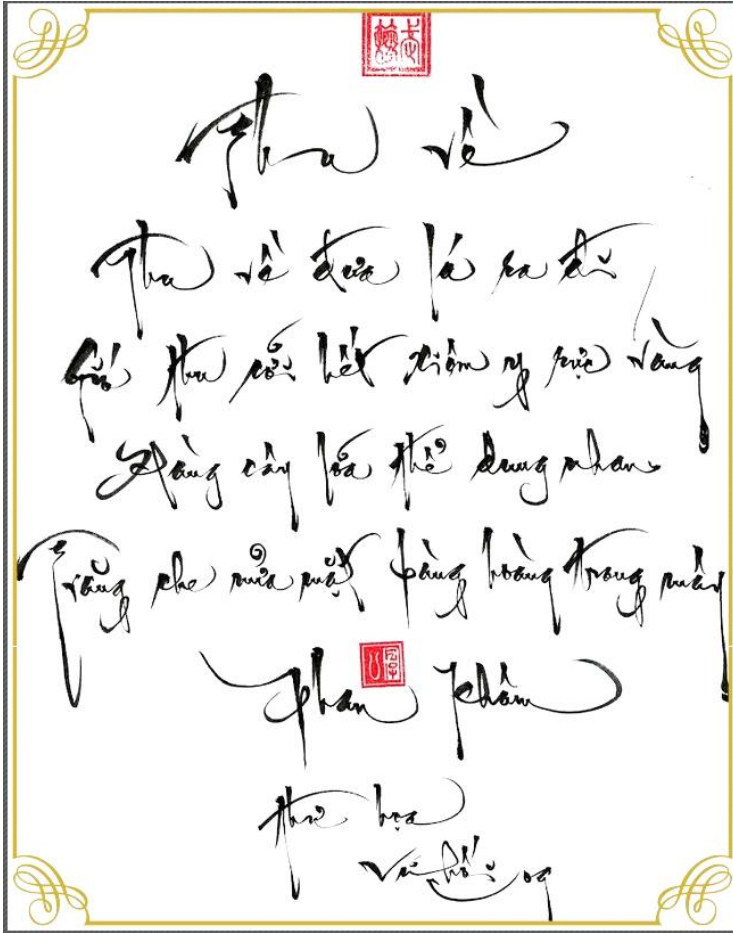 Thu về
Thu về đưa lá ra đi
Gió thu cởi hết xiêm y rực vàng
Hàng cây lõa thể dung nhan
Trăng che nửa mặt bàng hoàng trong mây
Phan Khâm
thư họa
Vũ Hối